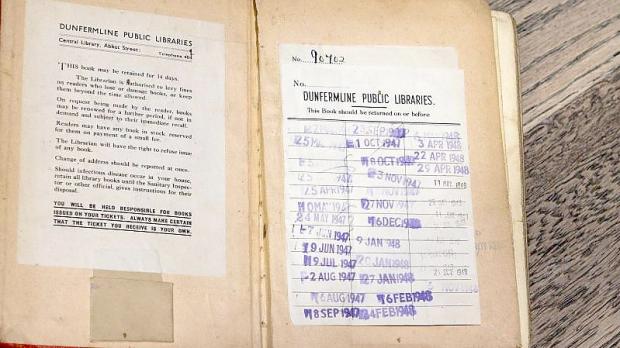 DUNFERMLINE PUBLIC LIBRARIES
Central Library, Abbot Street: Telephone
THIS book may be retained for 14 days.
The Librarian is authorised to levy fines
on readers who lose or damage books, or keep
them beyond the time allowed.
On request being made by the reader, books
may be renewed for a further period, if not in
demand and subject to their immediate recall.
Readers may have any book in stock reserved
for them on payment of a small fee.
The Librarian will have the right to refuse issue
of any book.
Change of address should be reported at once.
Should infectious disease occur in your house,
retain all library books until the Sanitary Inspec-
tor or other official, gives instructions for their
disposal.
YOU WILL BE HELD RESPONSIBLE FOR BOOKS
ISSUED ON YOUR TICKETS. ALWAYS MAKE CERTAIN
THAT THE TICKET YOU RECEIVE IS YOUR OWN.
No. 90702
No.
DUNFERMLINE PUBLIC LIBRARIES.
This Book should be returned on or before
1 OCT 1947 3 APR 1948
22 APR 1948
OCT 1947 29 APR 1948
APR 1947 NOV 1947
NOV 1947
24 MAY 1947 6 DEC
JUN 1947
9 JUN 1947 9 JAN 948
9 JUL 1947 JAN 1948
-2 AUG 1947 27 JAN 1948
6 AUG 1947 6 FEB 1948 NOV 1948
8 SEP 1947 24 FEB 1948